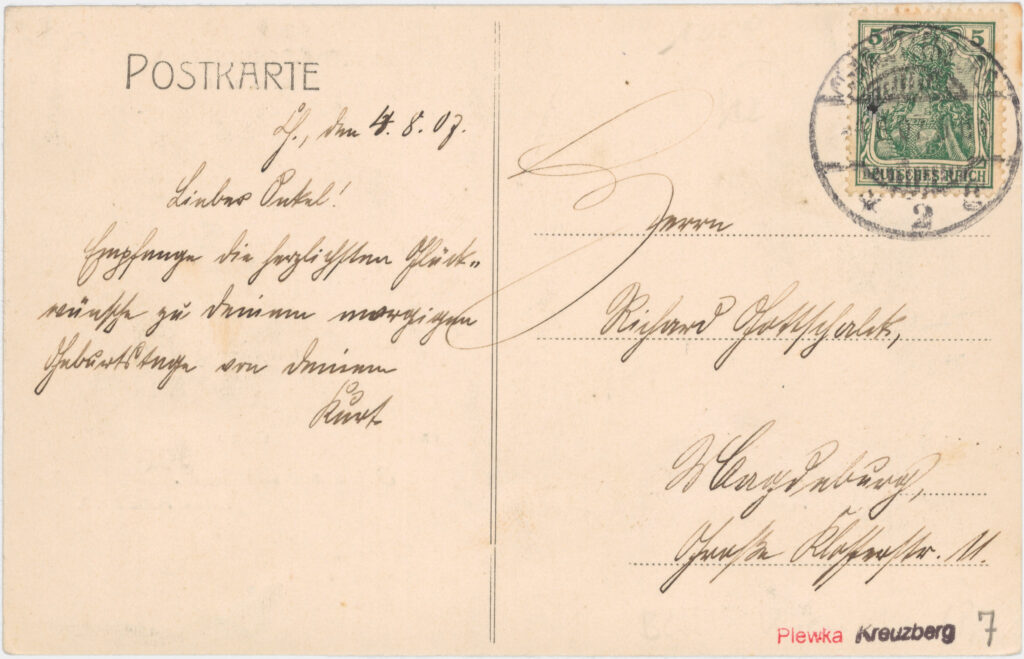 POSTKARTE
den 4.8.07.
Lieber Onkel!
Empfange die herzlichsten Glück-
wünsche zu deinem morgigen
Geburtstage von deinem
Kurt
5 5
DEUTSCHES REICH
2
Herrn
Richard Gottschalck,
Magdeburg,
Große Klosterstr. 11.
Plewka Kreuzberg 7